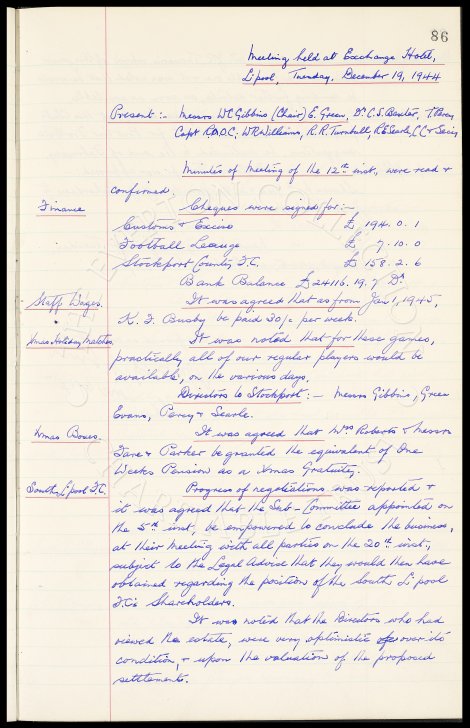 86
Meeting held at Exchange Hotel,
L'pool, Tuesday, December 19, 1944
Present :- Messrs W.C. Gibbins (Chair) E. Green, Dr. C.S. Baxter, T. Percy
Capt R.D.D.C; W.R. Williams, R.R. Turnbull, R.E. Searle, C.C. & Secy
Minutes of Meeting of the 12th inst, were read &
confirmed.
Finance
Cheques were signed for :-
Customs & Excise £ 194. 0. 1
Football League £ 7. 10. 0
Stockport County F.C. £ 158. 2. 6
Bank Balance £24116. 19. 7 Dr
Staff Wages.
It was agreed that as from Jan 1, 1945,
K. I. Busby be paid 30/- per week.
Xmas Holiday Matches.
It was noted that for these games,
practically all of our regular players would be
available, on the various days.
Directors to Stockport :- Messrs Gibbins, Green
Evans, Percy & Searle.
Xmas Boxes.
It was agreed that Mrs Roberts & Messrs
Fare & Parker be granted the equivalent of One
Weeks Pension as a Xmas Gratuity.
South L'pool F.C.
Progress of negotiations was reported &
it was agreed that the Sub-Committee appointed on
the 5th inst, be empowered to conclude the business,
at their meeting with all parties on the 20th inst,
subject to the Legal Advise that they would then have
obtained regarding the position of the South L'pool
F.C's Shareholders.
It was noted that the Directors who had
viewed the estate, were very optimistic over its
condition, & upon the valuation of the proposed
settlements.